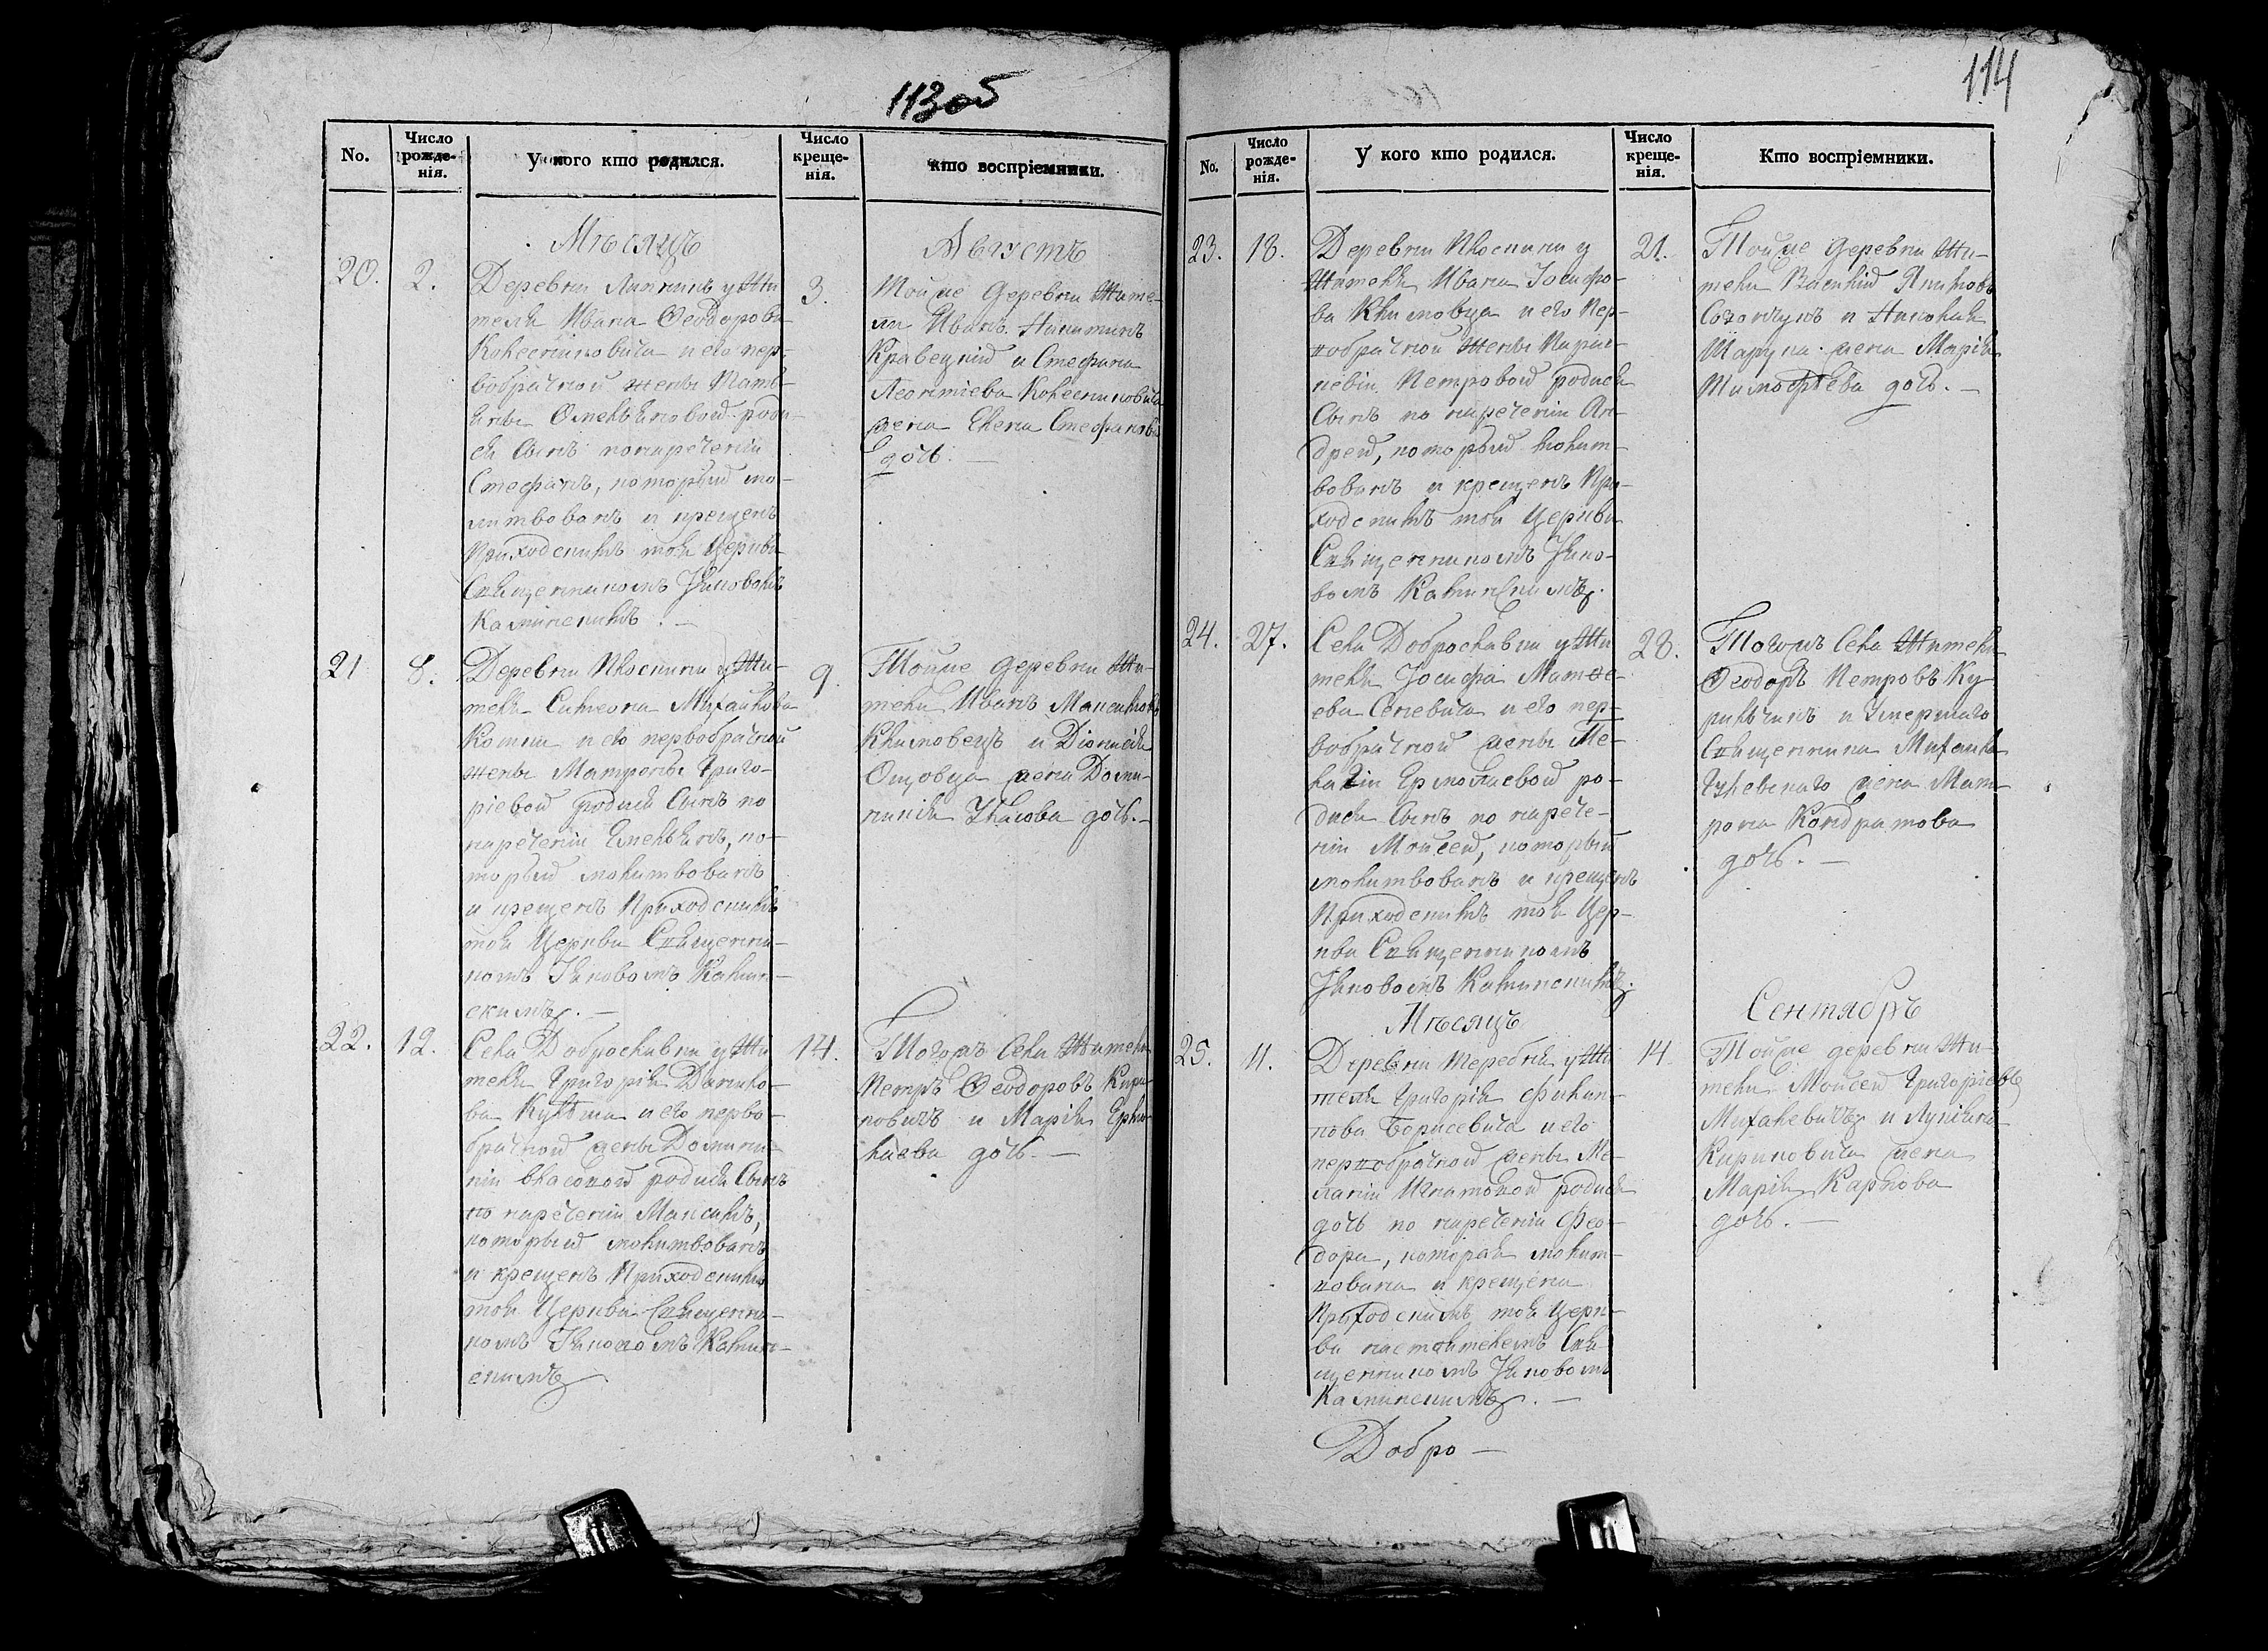 113об
No.
Число рожде-нія.
У кого кто родился.
Число креще-нія.
Кто воспріемники.
Мѣсяцъ
Августъ
20. 2.
Деревни Липникъ у Жи-
теля Ивана Ѳеодорова
и его пер-
вобрачной жены Татi-
яны Омельяновой роди-
ся Сынъ по нареченіи
Стефанъ, который мо-
литвованъ и крещенъ
Приходскимъ тоя Церкви
Священникомъ Іяковомъ
Калинскимъ. —
3.
Тойже Деревни Жите-
ли Иванъ Никитинъ
Кравецкій и Стефана
Леонтіева
жена Елена Стефанова
дочь. —
21 8.
Деревни Плоскини у Жи-
теля Симеона Михайлова
и его первобрачной
жены Матрены Григо-
ріевой родися Сынъ по
нареченіи Емельянъ, ко-
торый молитвованъ
и крещенъ Приходскимъ
тоя Церкви Священни-
комъ Іяковомъ Калин-
скимъ. —
9.
Тойже деревни Жи-
тели Иванъ Максимовъ
Климовецъ и Діонисія
жена Доми-
никія Уласова дочь. —
22. 12.
Села Доброславки у Жи
теля Григорія Данило-
ва и его перво-
брачной жены Домини-
кіи Власовой родися Сынъ
по нареченіи Максимъ,
который молитвованъ
и крещенъ Приходскимъ
тоя Церкви Священни-
комъ Іяковомъ Калин-
скимъ
14.
Тогожъ Села Жители
Петръ Ѳеодоровъ Кири
ловичъ и Марія Ерми-
лаева дочь. —
114
No.
Число рожде-нія.
У кого кто родился.
Число креще-нія.
Кто воспріемники.
23. 18.
Деревни Плоскини у
Жителя Ивана Іосифо-
ва Климовца и его Пер-
вобрачной Жены Парас-
кевіи Петровой родися
Сынъ по нареченіи Ан-
дрей, который молит-
вованъ и крещенъ При-
ходскимъ тоя Церкви
Священникомъ Іяко-
вомъ Калинскимъ.
21.
Тойже деревни Жи-
тели Василій Якимовъ
и Николая
жена Марія
Тимофѣева дочь. —
24. 27.
Села Доброславки у Жи
теля Іосифа Матѳе-
ева Сачевича и его пер-
вобрачной жены Пе-
лагіи Ермолаевой ро-
дися Сынъ по нарече-
ніи Мойсей, который
молитвованъ и крещенъ
Приходскимъ тоя Цер-
кви Священникомъ
Іяковомъ Калинскимъ.
28.
Тогожъ Села Жители
Ѳеодоръ Петровъ Ку-
и Умершаго
Священника Михаила
жена Мат-
рона Кондратова
дочь. —
Мѣсяцъ
Сентябрь
25. 11.
Деревни Теребня у Жи
теля Григорія Филип-
пова Борисевича и его
первобрачной жены Ме-
ланіи Игнатовой родися
дочь по нареченіи Фео-
дора, которая молит-
вована и крещена
Приходскимъ тоя Церк-
ви настоятелемъ Свя
щенникомъ Іяковомъ
Калинскимъ. —
14
Тойже деревни Жи-
тели Мойсей Григоріевъ
Михалевичъ и Лукіяна
Кириловича жена
Марія Карпова
дочь. —
Добро —